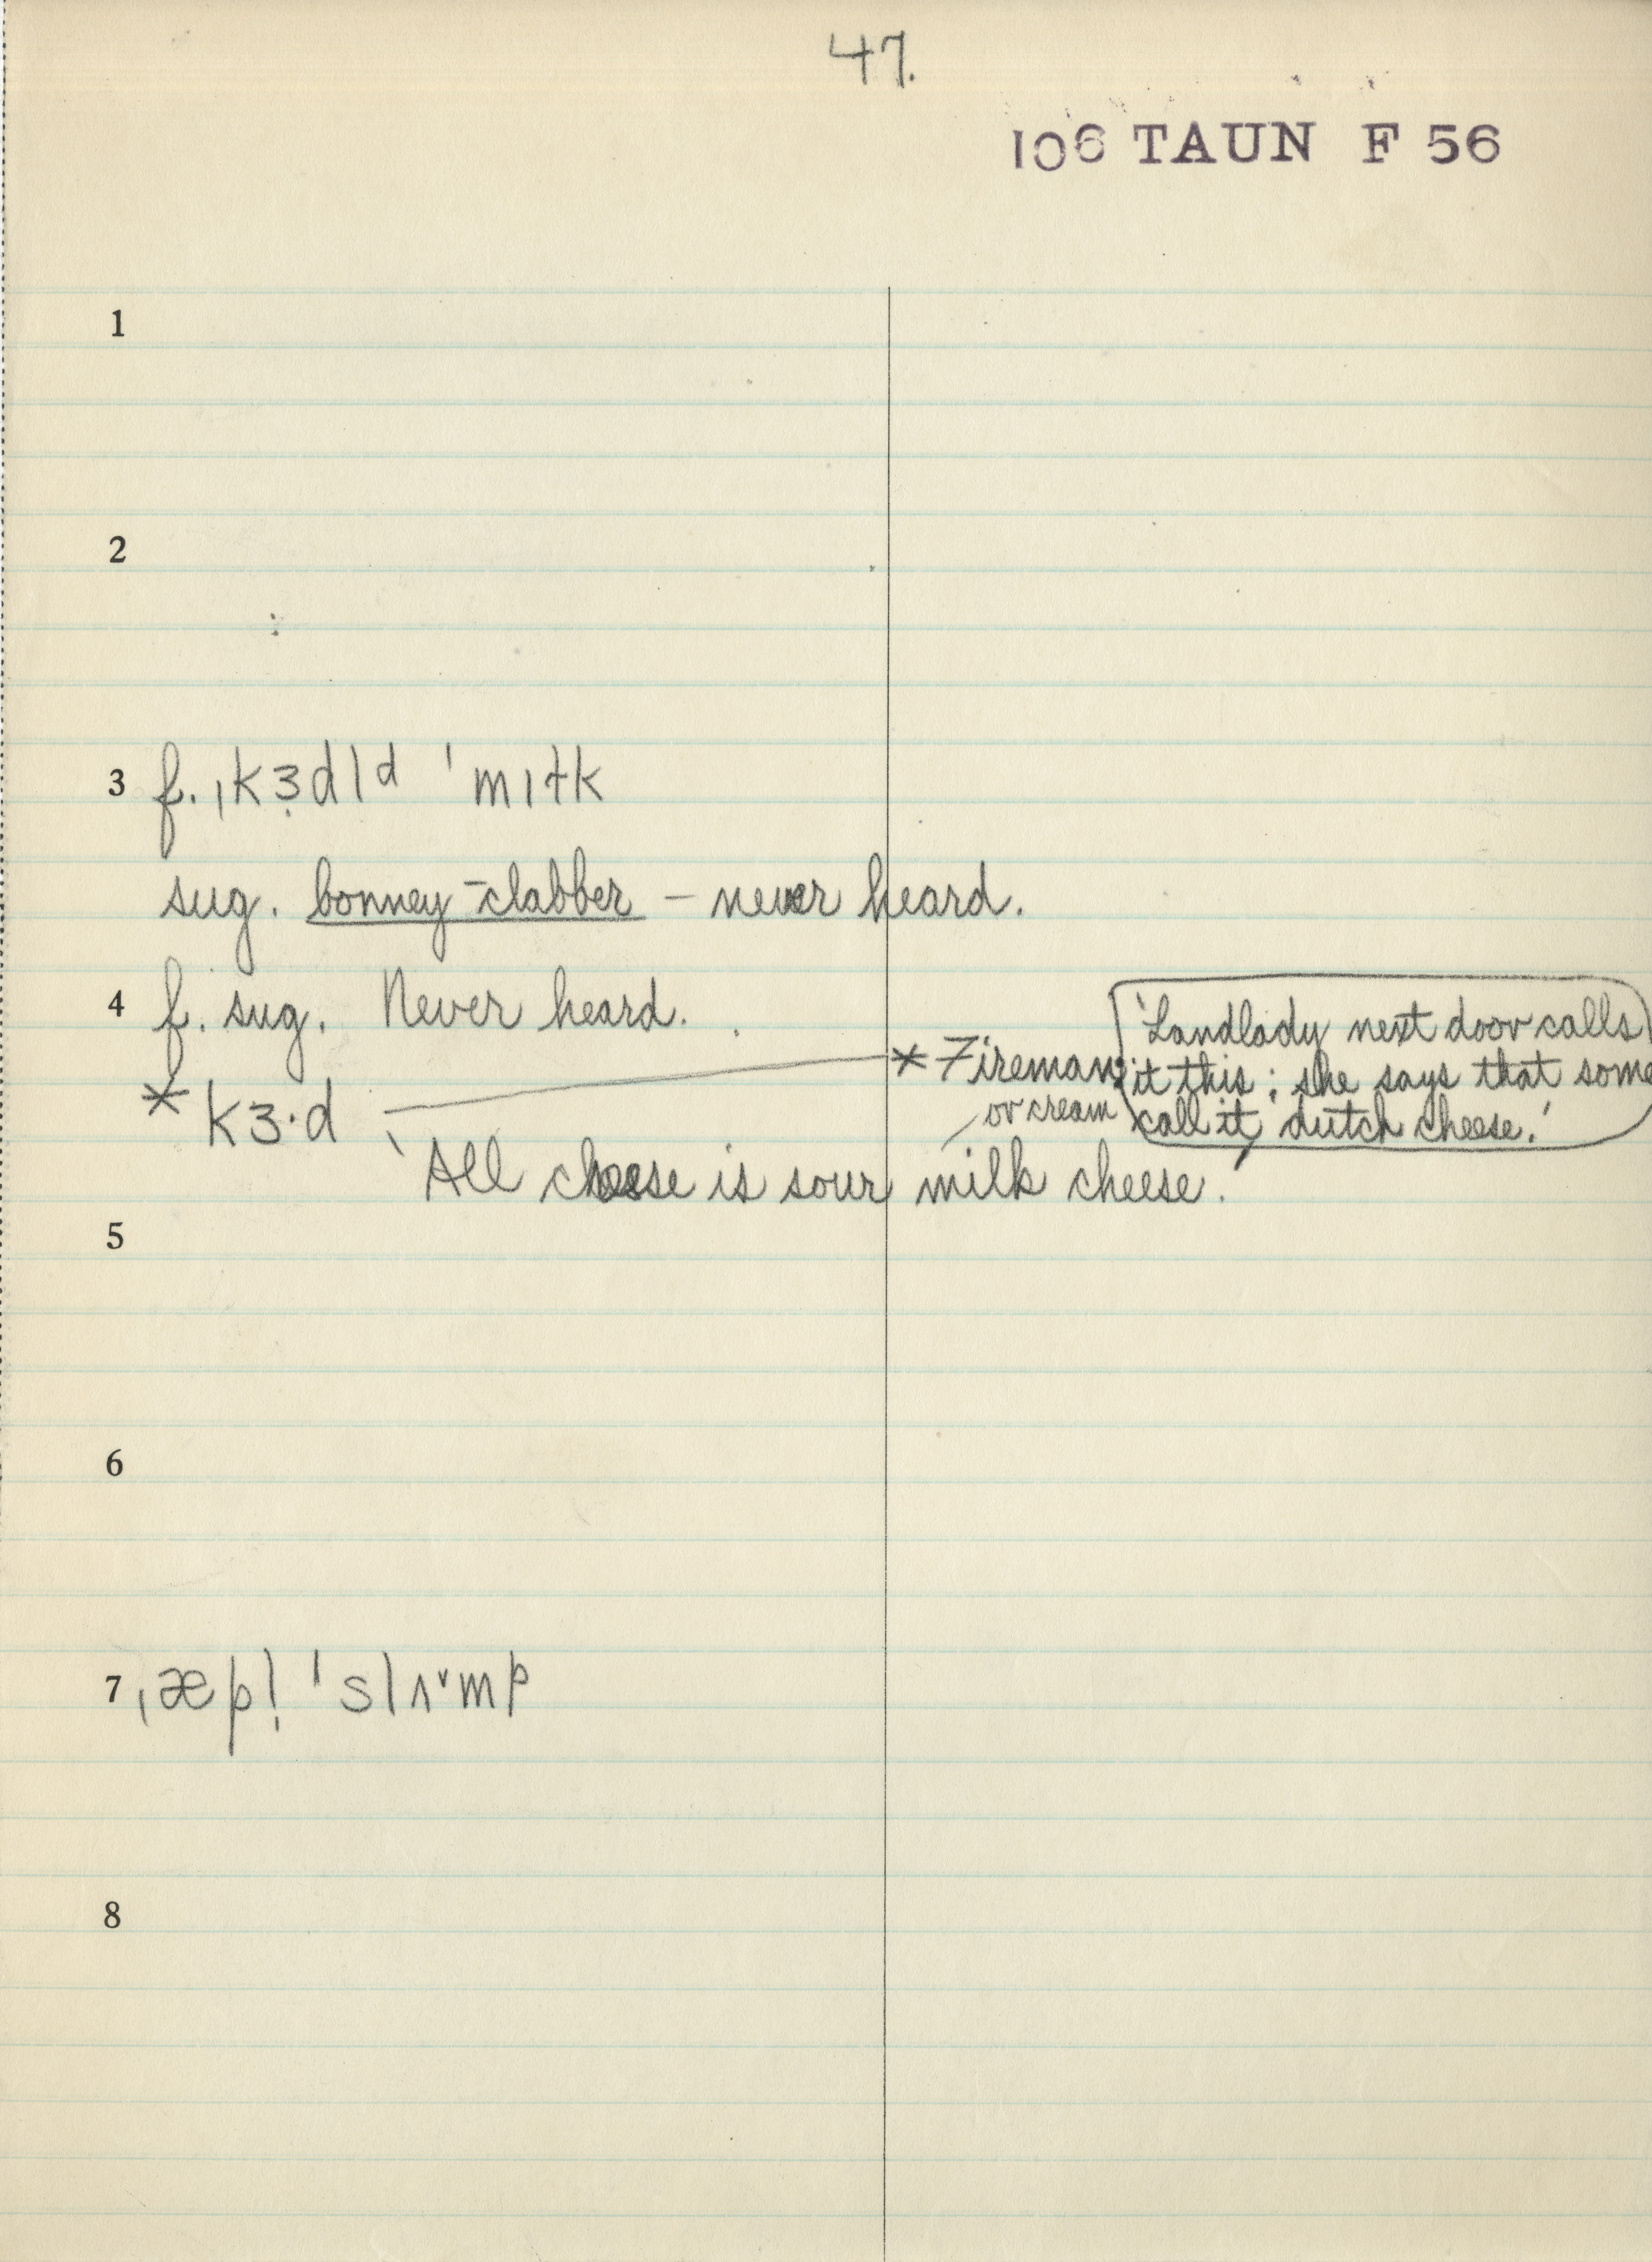 47.
106 TAUN F 56
1
2
3 f. ˌkɜ̣dlᵈ ˈmɪɫk
sug. bonney-clabber – never heard.
4 f. sug. Never heard.
* kɜ·d — * Fireman: 'Landlady next door calls
it this; she says that some
call it dutch cheese.'
or cream
'All cheese is sour milk cheese.'
5
6
7 ˌæpl̩ ˈslʌ˅mp
8